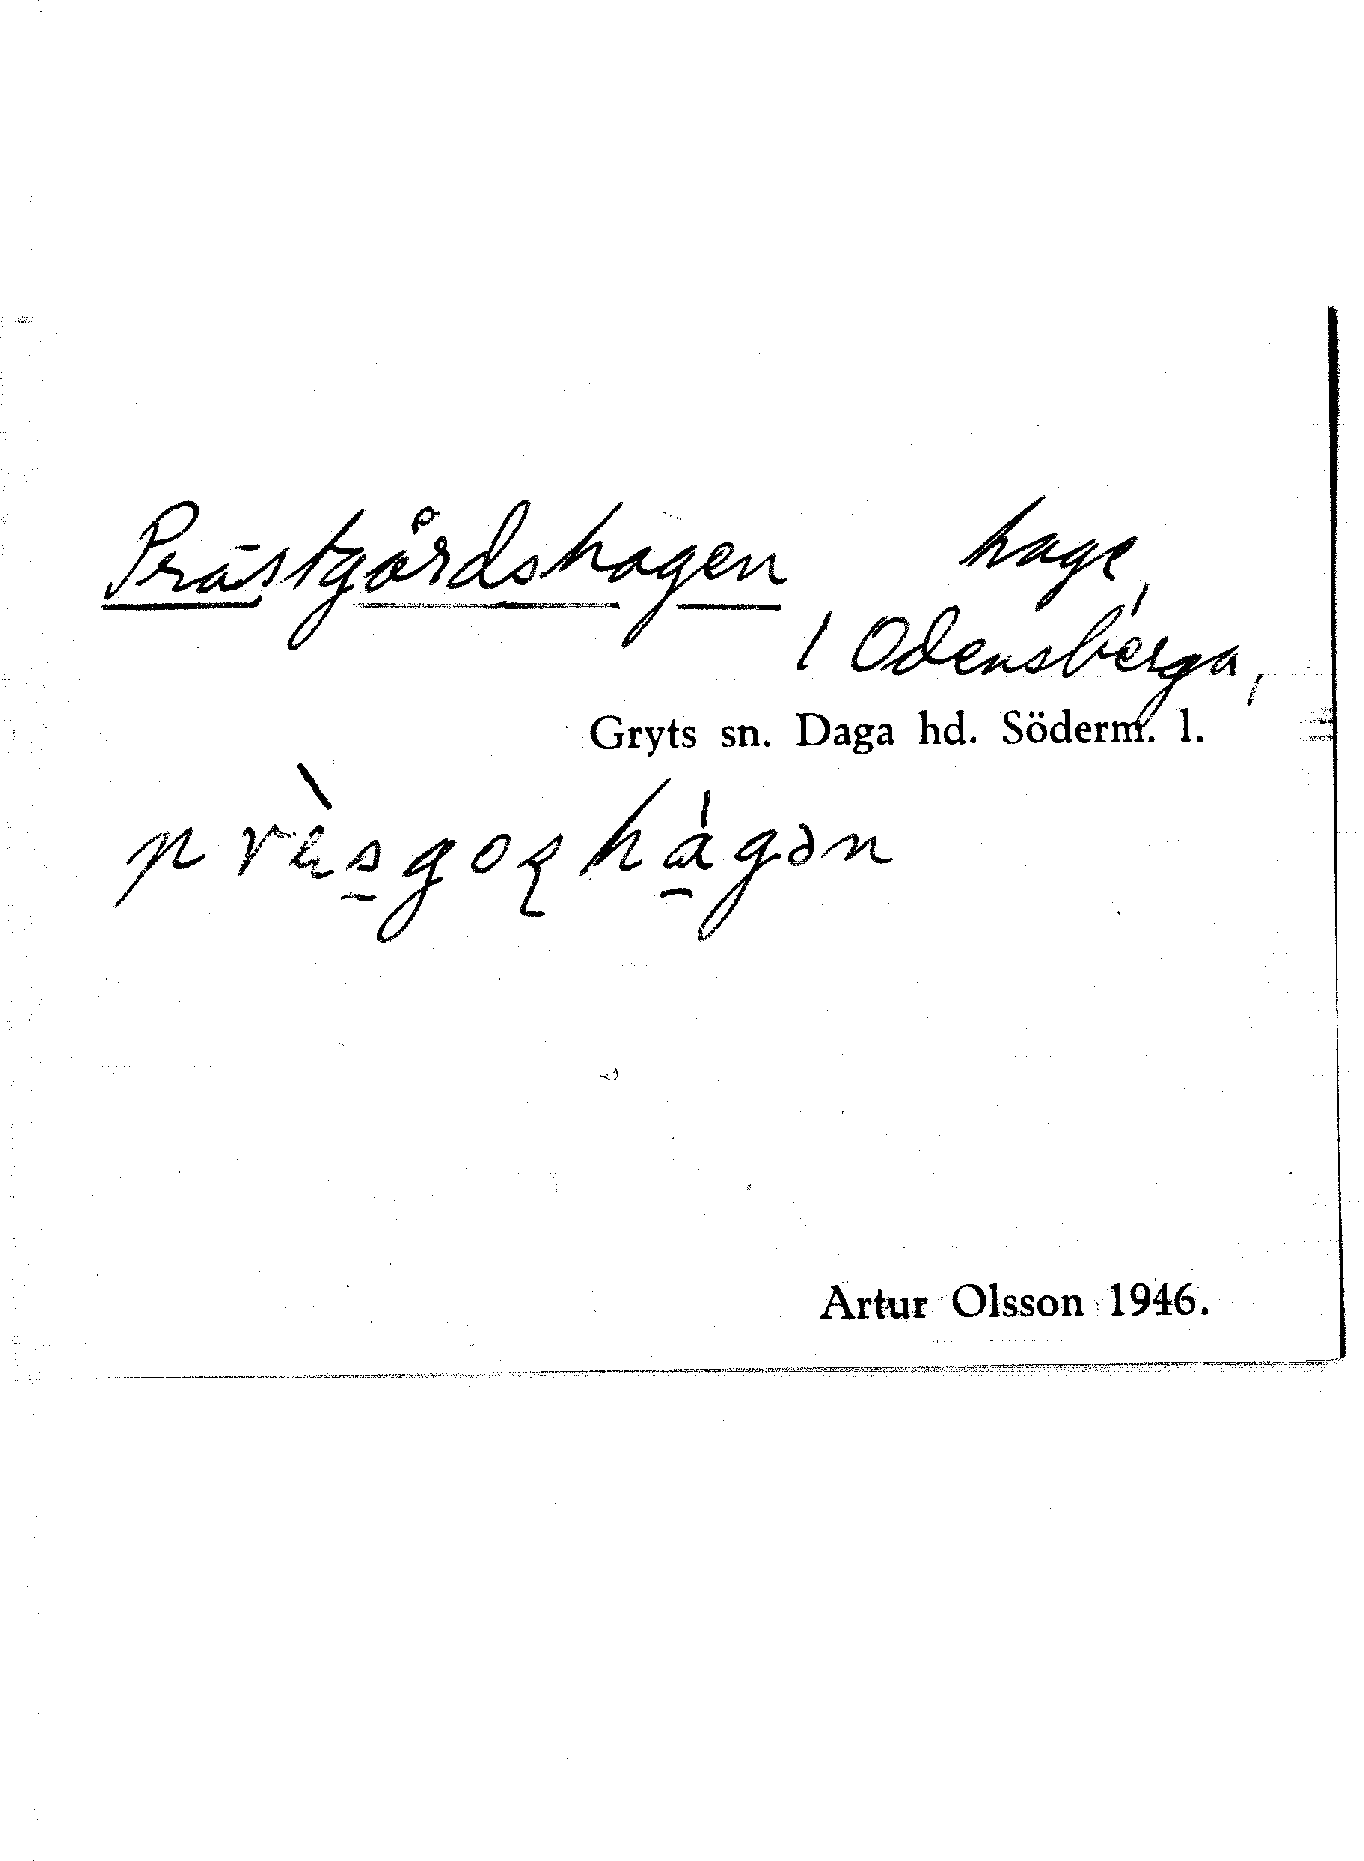 Prästgårdshagen hage,
i Odensberga,
Gryts sn. Daga hd. Söderm. l.
Artur Olsson 1946.